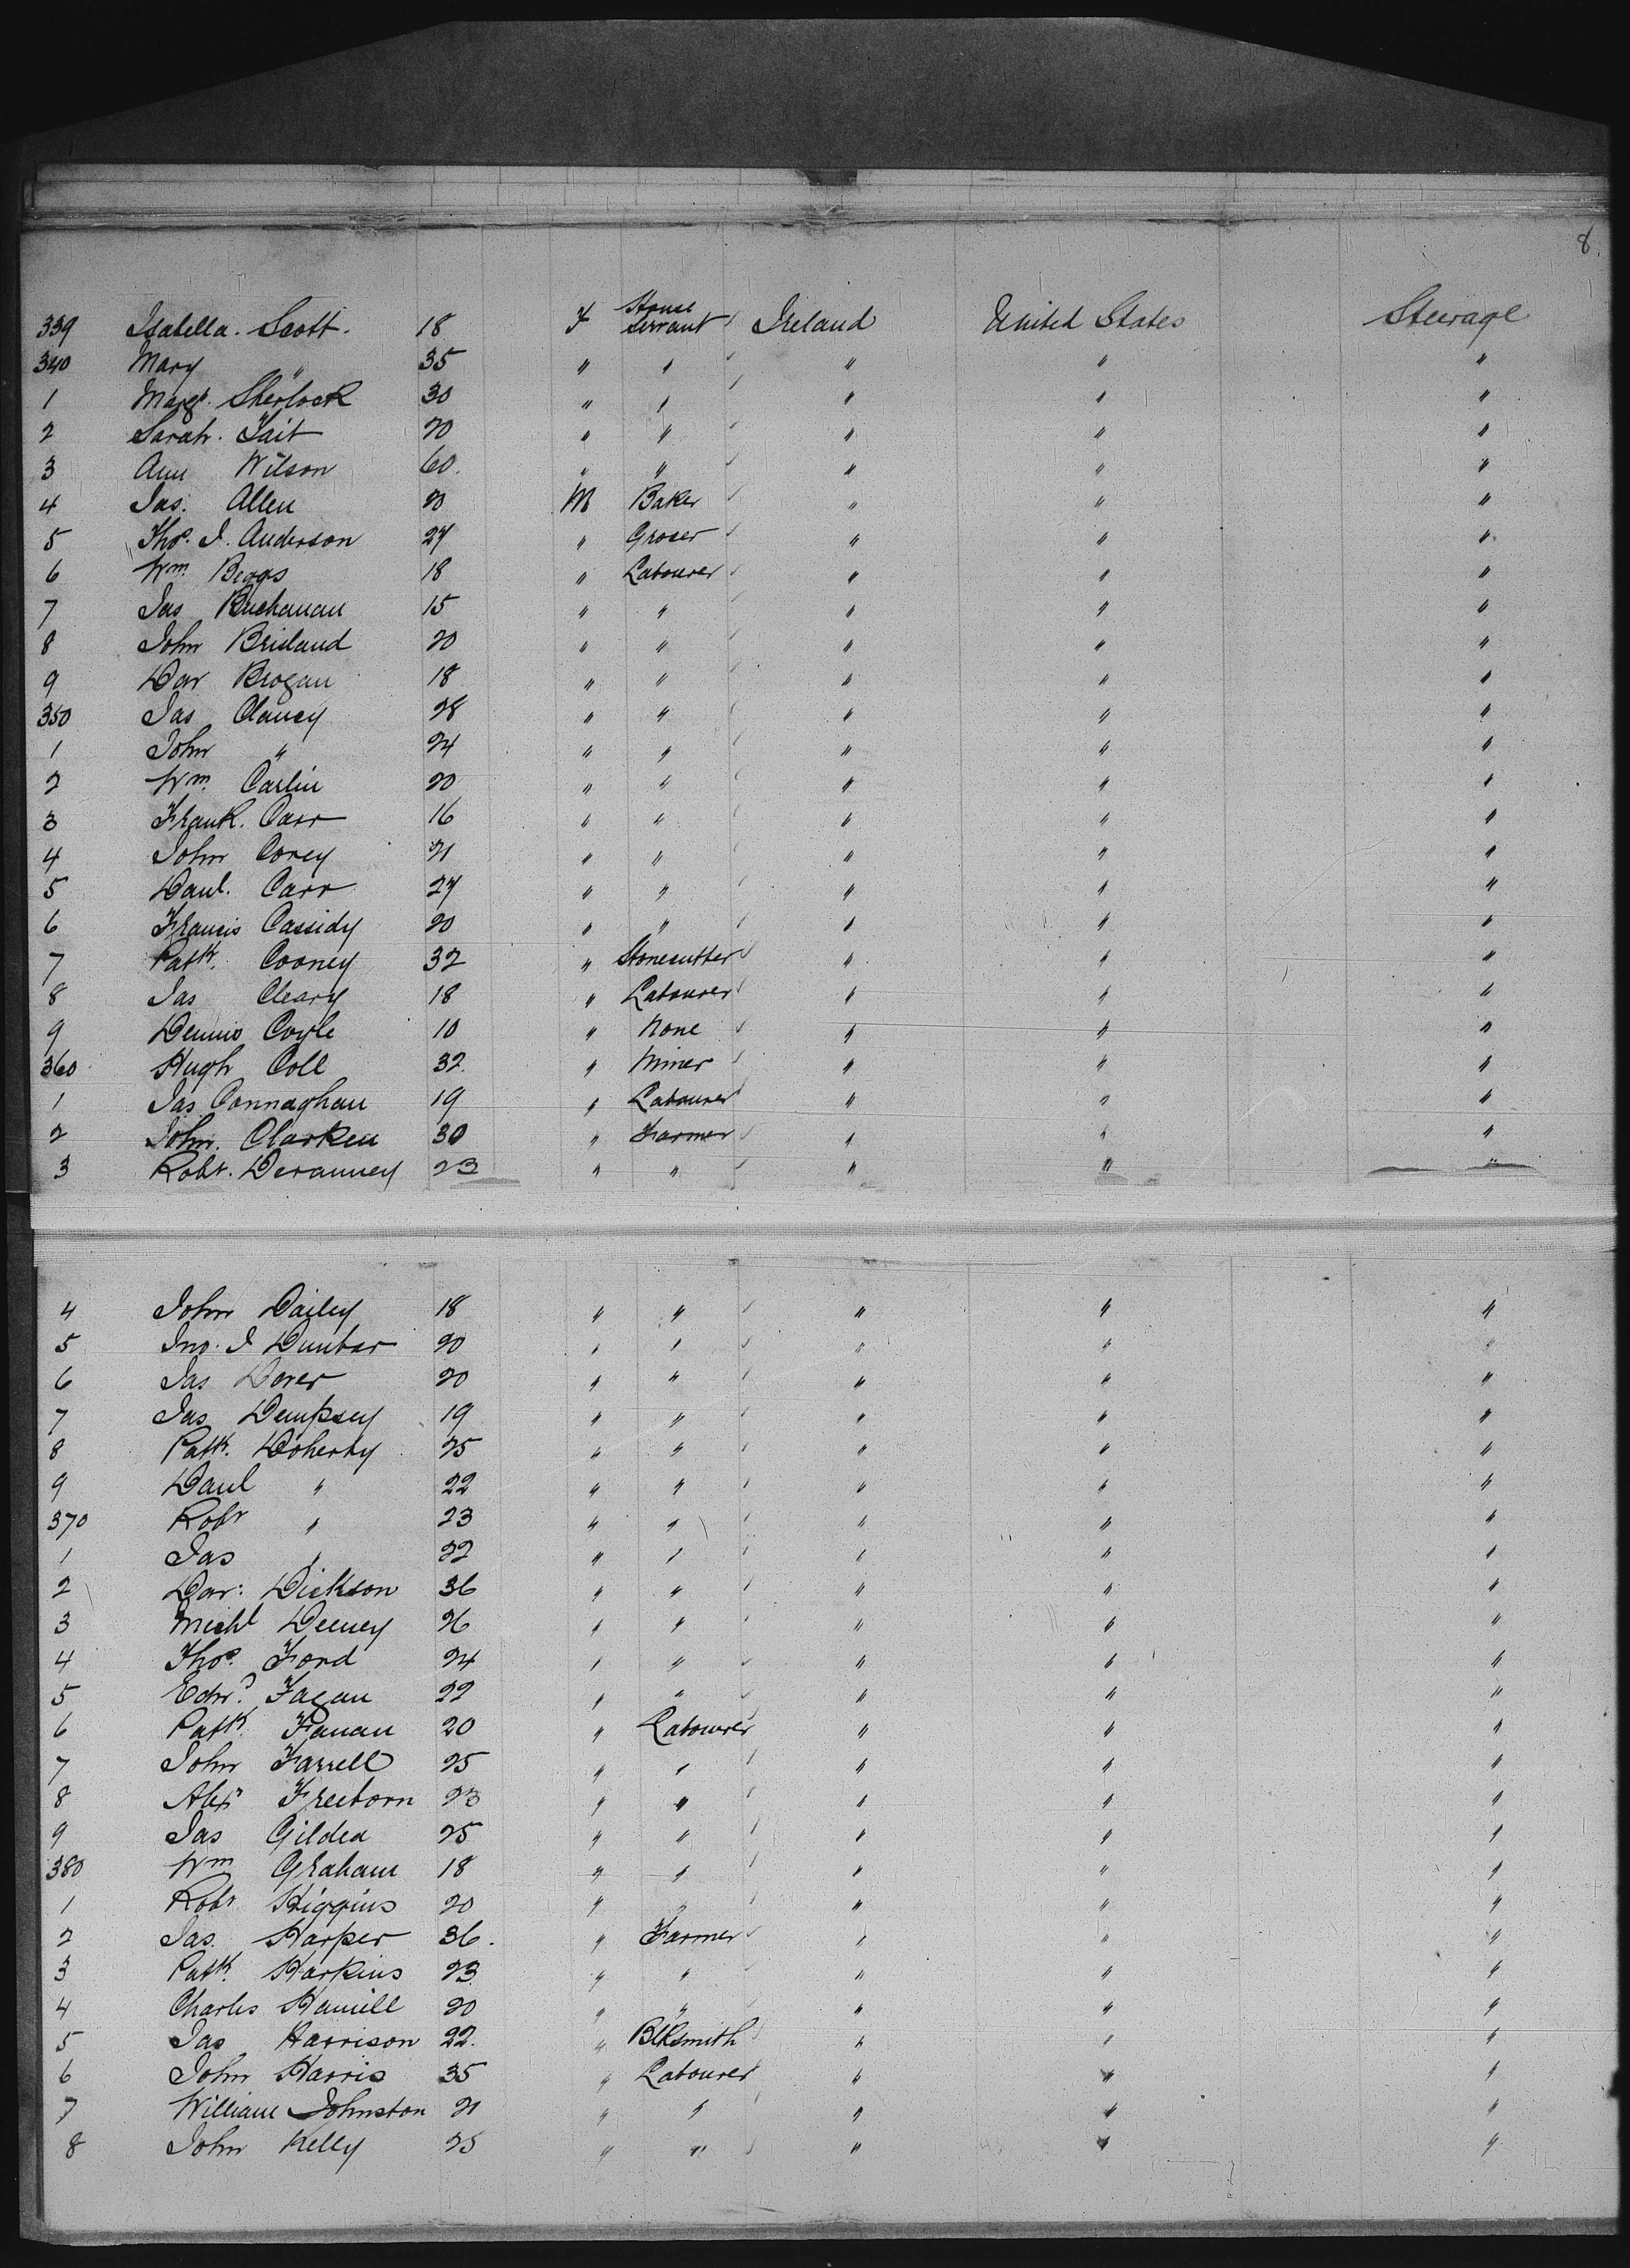 8.
339 Isabella. Scott. 18 F House Servant Ireland United States Steerage
340 Mary " 35 " " " " "
1 Margt. Sherlock 30 " " " " "
2 Sarah. Tait 20 " " " " "
3 Ann Wilson 60. " " " " "
4 Jas. Allen 20 M Baker " " "
5 Thos. J. Anderson 27 " Grocer " " "
6 Wm. Beggs 18 " Labourer " " "
7 Jas Buchanan 15 " " " " "
8 John Brisland 20 " " " " "
9 Dav Brogan 18 " " " " "
350 Jas Clancy 28 " " " " "
1 John " 24 " " " " "
2 Wm. Carlin 20 " " " " "
3 Frank. Carr 16 " " " " "
4 John Corey 21 " " " " "
5 Danl. Carr 27 " " " " "
6 Francis Cassidy 20 " " " " "
7 Patk. Cooney 32 " Stonecutter " " "
8 Jas Cleary 18 " Labourer " " "
9 Dennis Coyle 10 " None " " "
360 Hugh Coll 32. " Miner " " "
1 Jas Connaghan 19 " Labourer " " "
2 John. Clarken 30 " Farmer " " "
3 Robt. Devanney 23 " " " " "
4 John Dailey 18 " " " " "
5 Jno. J Dunbar 20 " " " " "
6 Jas Dover 20 " " " " "
7 Jas Dempsey 19 " " " " "
8 Patk. Doherty 25 " " " " "
9 Danl " 22 " " " " "
370 Robt " 23 " " " " "
1 Jas " 22 " " " " "
2 Dav: Dickson 36 " " " " "
3 Michl Deeney 26 " " " " "
4 Thos. Ford 24 " " " " "
5 Edwd. Fagan 22 " " " " "
6 Patk. Fanan 20 " Labourer " " "
7 John Farrell 25 " " " " "
8 Alexr Freeborn 23 " " " " "
9 Jas Gildea 25 " " " " "
380 Wm Graham 18 " " " " "
1 Robt Higgins 20 " " " " "
2 Jas. Harper 36. " Farmer " " "
3 Patk. Harkins 23 " " " " "
4 Charles Hamill 20 " " " " "
5 Jas Harrison 22. " Blksmith " " "
6 John Harris 35 " Labourer " " "
7 William Johnston 21 " " " " "
8 John Kelly 25 " " " " "